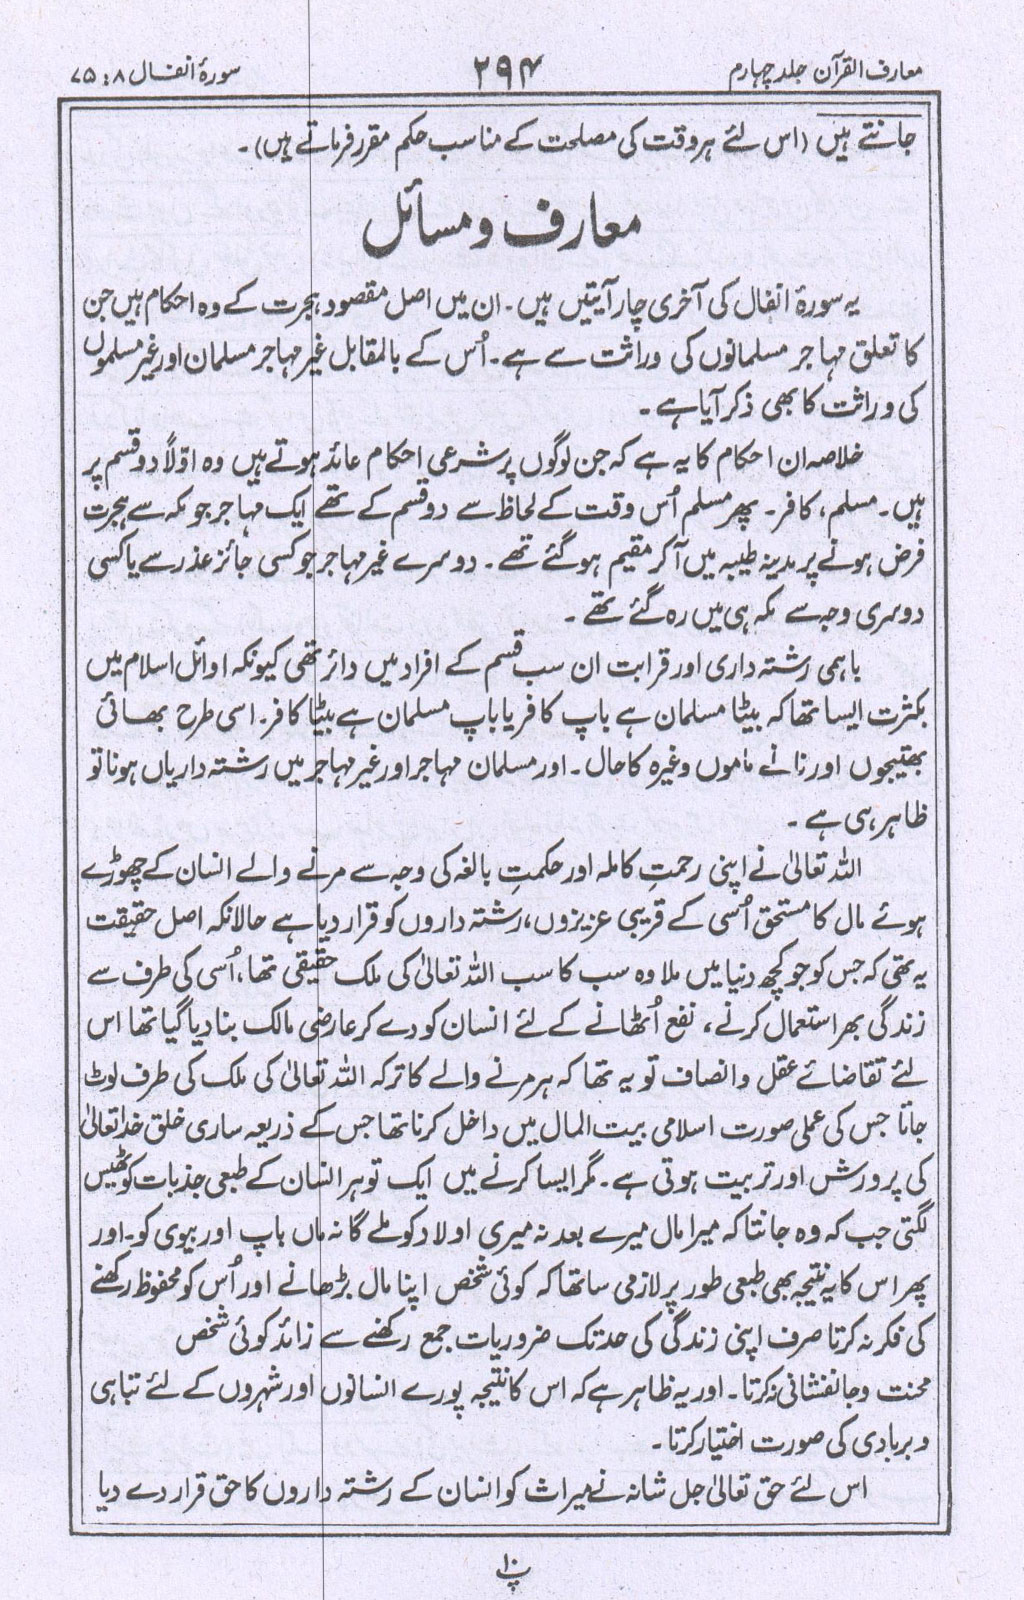 معارف القرآن جلد چہارم
۲۹۴
سورۂ انفال ۸ : ۷۵
جانتے ہیں (اس لئے ہر وقت کی مصلحت کے مناسب حکم مقرر فرماتے ہیں)۔
معارف و مسائل
یہ سورۂ انفال کی آخری چار آیتیں ہیں۔ ان میں اصل مقصود ہجرت کے وہ احکام ہیں جن
کا تعلق مہاجر مسلمانوں کی وراثت سے ہے۔ اُس کے بالمقابل غیر مہاجر مسلمان اور غیر مسلموں
کی وراثت کا بھی ذکر آیا ہے۔
خلاصہ ان احکام کا یہ ہے کہ جن لوگوں پر شرعی احکام عائد ہوتے ہیں وہ اوّلاً دو قسم پر
ہیں۔ مسلم، کافر۔ پھر مسلم اُس وقت کے لحاظ سے دو قسم کے تھے ایک مہاجر جو مکہ سے ہجرت
فرض ہونے پر مدینہ طیبہ میں آکر مقیم ہوگئے تھے۔ دوسرے غیر مہاجر جو کسی جائز عذر سے یا کسی
دوسری وجہ سے مکہ ہی میں رہ گئے تھے۔
باہمی رشتہ داری اور قرابت ان سب قسم کے افراد میں دائر تھی کیونکہ اوائل اسلام میں
بکثرت ایسا تھا کہ بیٹا مسلمان ہے باپ کافر یا باپ مسلمان ہے بیٹا کافر۔ اسی طرح بھائی
بھتیجوں اور نانے ماموں وغیرہ کا حال۔ اور مسلمان مہاجر اور غیر مہاجر میں رشتہ داریاں ہونا تو
ظاہر ہی ہے۔
اللہ تعالیٰ نے اپنی رحمتِ کاملہ اور حکمتِ بالغہ کی وجہ سے مرنے والے انسان کے چھوڑے
ہوئے مال کا مستحق اُسی کے قریبی عزیزوں، رشتہ داروں کو قرار دیا ہے حالانکہ اصل حقیقت
یہ تھی کہ جس کو جو کچھ دنیا میں ملا وہ سب کا سب اللہ تعالیٰ کی ملک حقیقی تھا، اُسی کی طرف سے
زندگی بھر استعمال کرنے، نفع اُٹھانے کے لئے انسان کو دے کر عارضی مالک بنا دیا گیا تھا اس
لئے تقاضائے عقل و انصاف تو یہ تھا کہ ہر مرنے والے کا ترکہ اللہ تعالیٰ کی ملک کی طرف لوٹ
جاتا جس کی عملی صورت اسلامی بیت المال میں داخل کرنا تھا جس کے ذریعہ ساری خلق خدا تعالیٰ
کی پرورش اور تربیت ہوتی ہے۔ مگر ایسا کرنے میں ایک تو ہر انسان کے طبعی جذبات کو ٹھیس
لگتی جب کہ وہ جانتا کہ میرا مال میرے بعد نہ میری اولاد کو ملے گا نہ ماں باپ اور بیوی کو۔ اور
پھر اس کا یہ نتیجہ بھی طبعی طور پر لازمی سا تھا کہ کوئی شخص اپنا مال بڑھانے اور اُس کو محفوظ رکھنے
کی فکر نہ کرتا صرف اپنی زندگی کی حد تک ضروریات جمع رکھنے سے زائد کوئی شخص
محنت و جانفشانی نہ کرتا۔ اور یہ ظاہر ہے کہ اس کا نتیجہ پورے انسانوں اور شہروں کے لئے تباہی
و بربادی کی صورت اختیار کرتا۔
اس لئے حق تعالیٰ جل شانہ نے میراث کو انسان کے رشتہ داروں کا حق قرار دے دیا
پ ۱۰